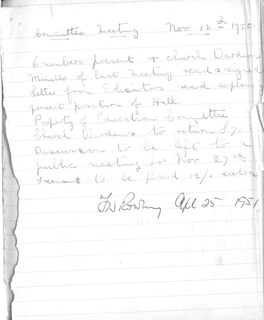 Committee Meeting Nov 16th 1950
6 members present & Church Warden
Minutes of last meeting read & signed
letter from Solicitors read explaining
present position of Hall.
Property of Education Committee
Church Wardens to return £70
Discussion to be left to a
public meeting on Nov 27th
to be paid extra
April 25 1951